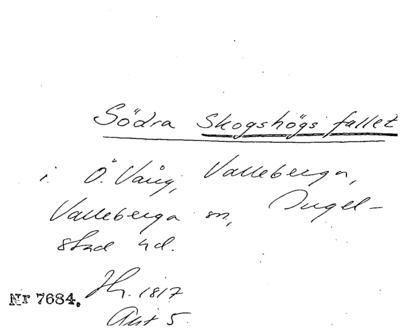 Södra Skogshögs fallet
i Ö. Vång, Valleberga,
Valleberga sn, Ingel-
stad hd.
Nr 7684. Hr. 1817
Akt 5